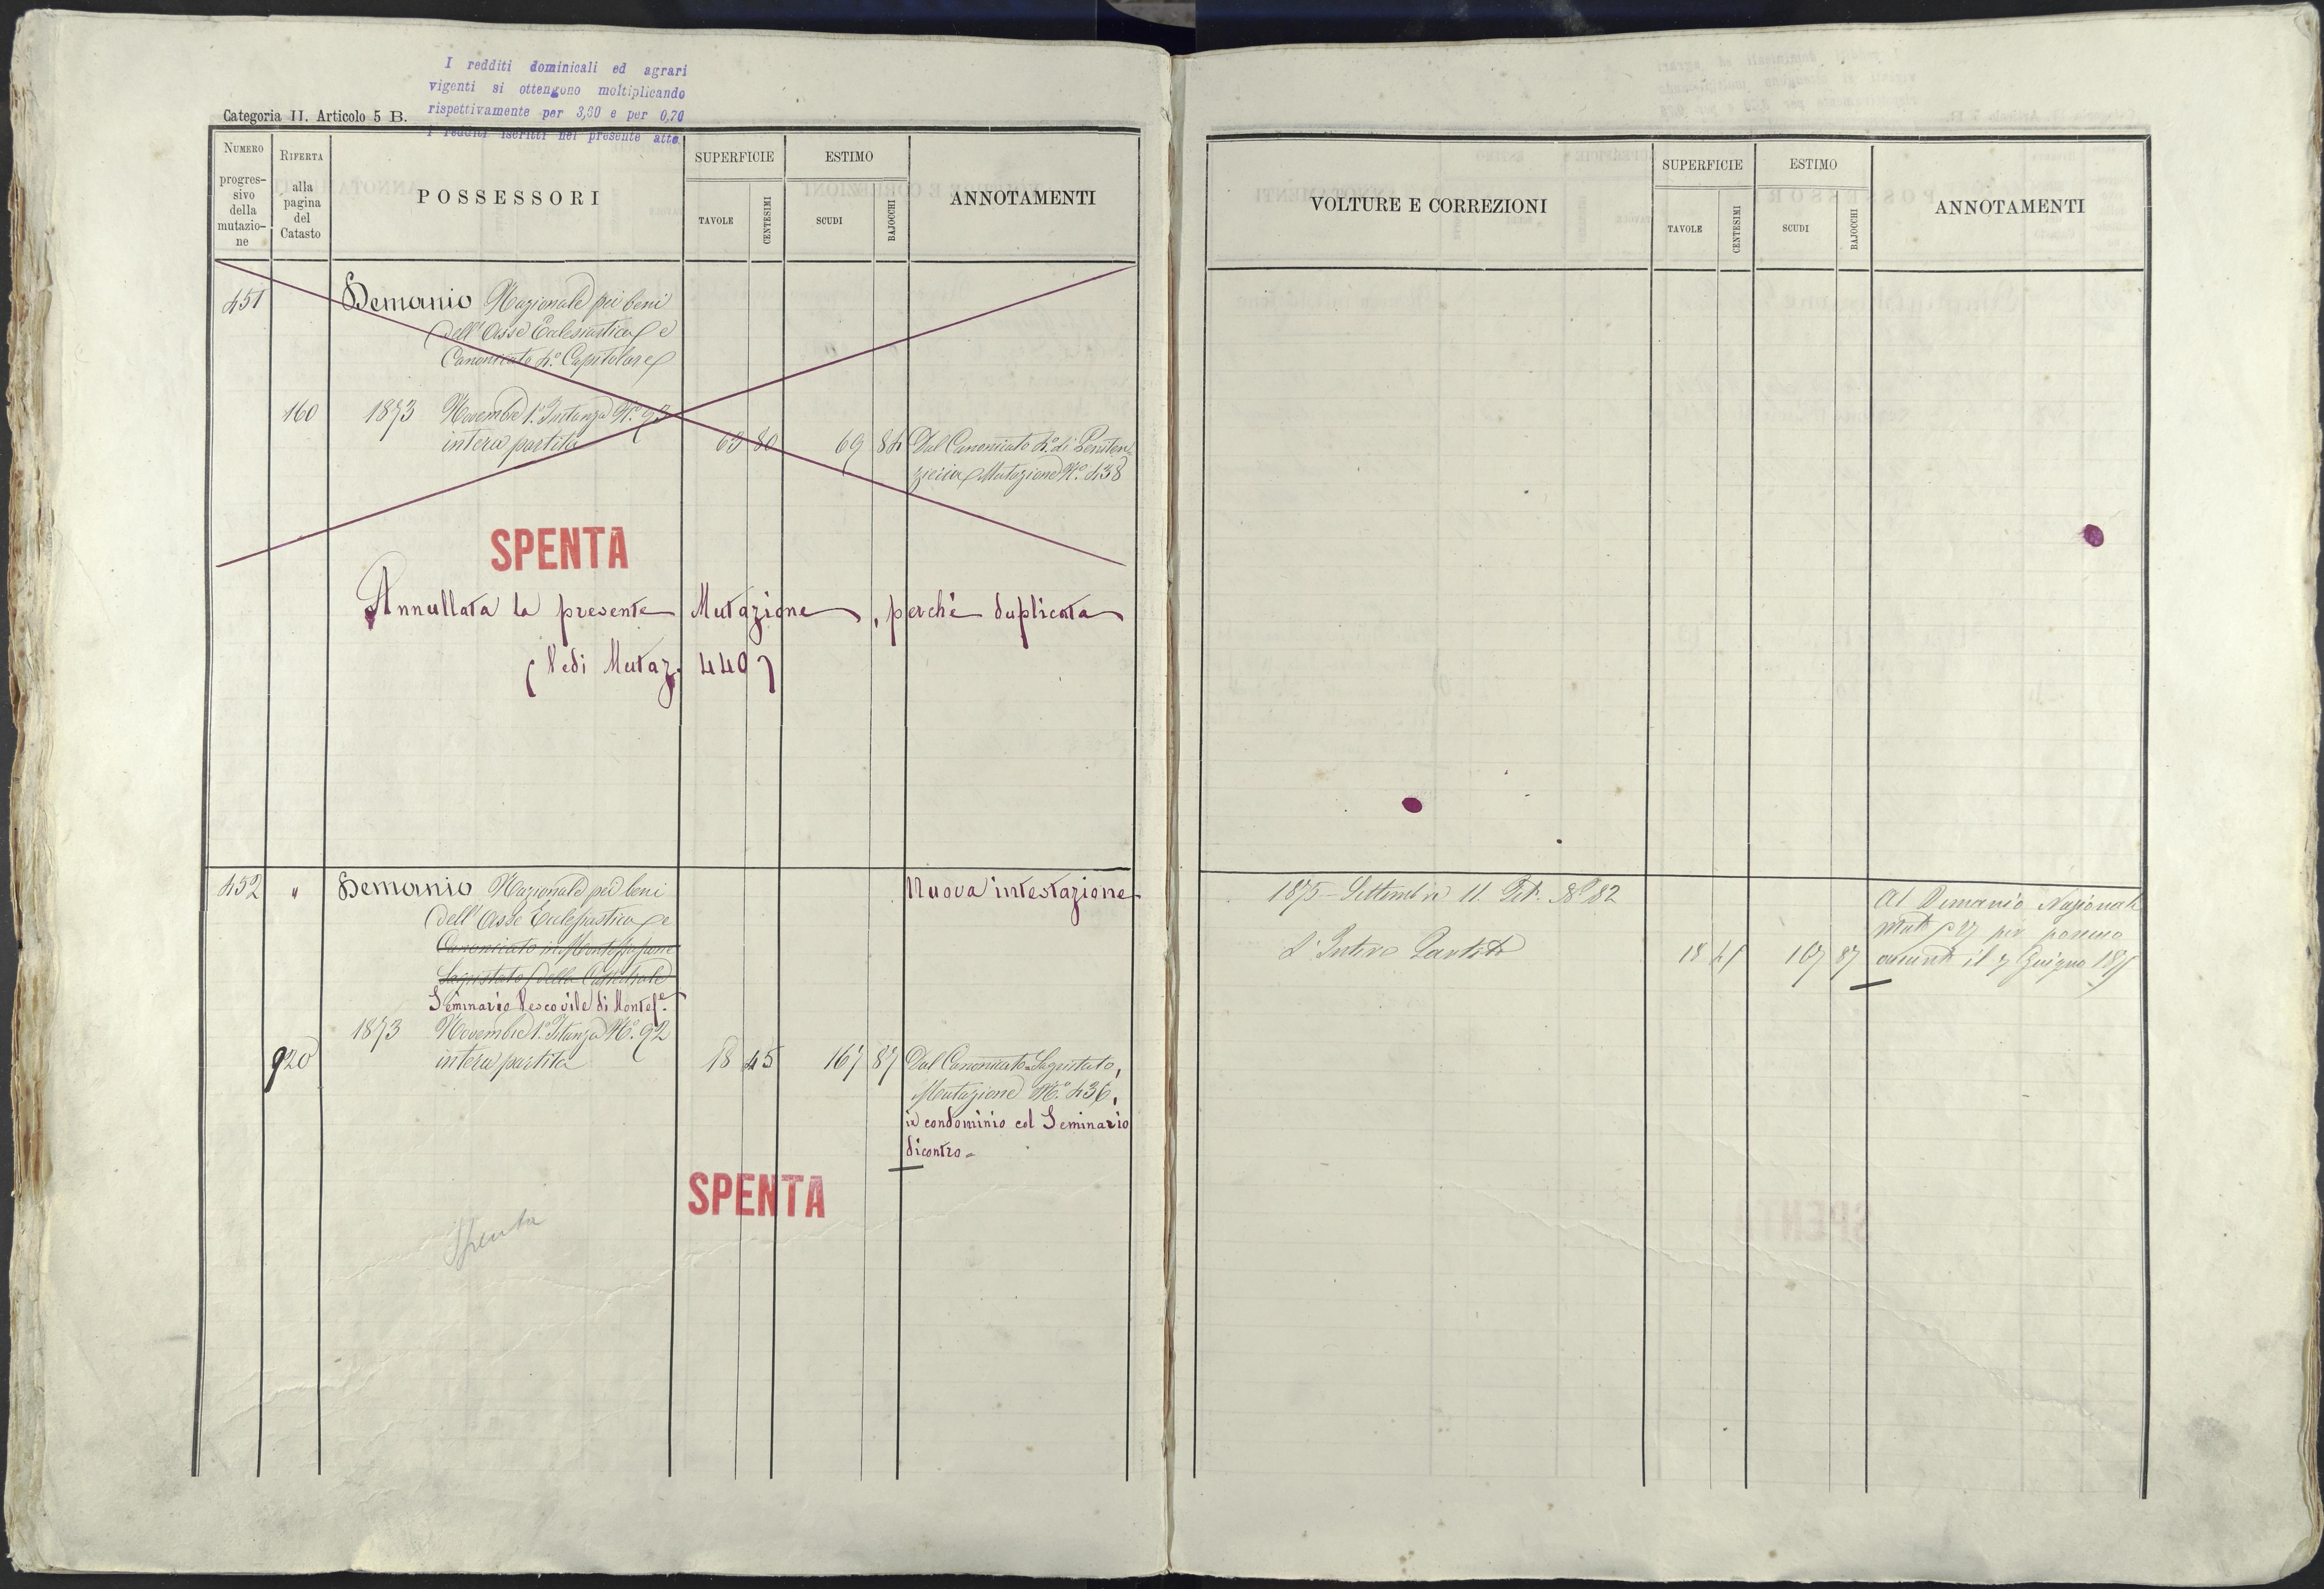 I redditi dominicali ed agrari
vigenti si ottengono moltiplicando
rispettivamente per 3,60 e per 0,70
i redditi iscritti nel presente atto.
Categoria II. Articolo 5 B.
NUMERO progressivo della mutazione
RIFERTA alla pagina del Catasto
POSSESSORI
SUPERFICIE
TAVOLE
CENTESIMI
ESTIMO
SCUDI
BAJOCCHI
ANNOTAMENTI
451
Demanio Nazionale pei beni
dell'Asse Ecclesiastico e
Canonicato 4.º Capitolare
160
1873 Novembre 1.º Instanza N.º 93
intera partita
63 80
69 84
Dal Canonicato 4.º di Peniten
zieria Mutazione N.º 438
SPENTA
Annullata la presente Mutazione, perchè duplicata
(Vedi Mutaz. 440)
452 "
Demanio Nazionale pei beni
dell'Asse Ecclesiastico e
Canonicato in Montefiascone
Sagristato della Cattedrale
Seminario Vescovile di Montef.e
Nuova intestazione
920
1873 Novembre 1.º Istanza N.º 92
intera partita
18 45
167 87
Dal Canonicato Sagristato,
Mutazione N.º 436,
in condominio col Seminario
dicontro.
SPENTA
Spenta
VOLTURE E CORREZIONI
SUPERFICIE
TAVOLE
CENTESIMI
ESTIMO
SCUDI
BAJOCCHI
ANNOTAMENTI
1875 Settembre 11. N.º 82
L'Intera Partita
18 41
167 87
Al Demanio Nazionale
per possesso
il 7 Giugno 1875